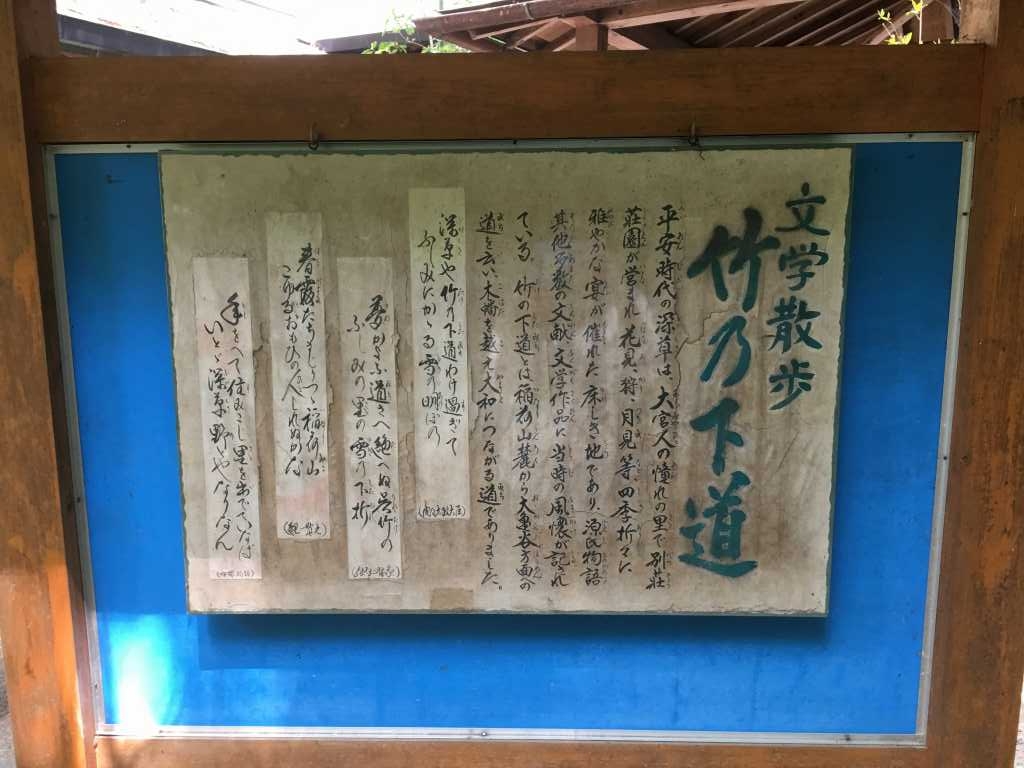 文学散歩
竹乃下道
平安時代の深草は、大宮人の憧れの里で別荘
荘園が営まれ、花見、狩、月見等、四季折々に
雅やかな宴が催れた床しき地であり、源氏物語
其他多数の文献、文学作品に当時の風懐が記され
ている。竹の下道とは稲荷山麓から大亀谷方面への
道を云い、木幡を越え大和につながる道でありました。
深草や竹の下道わけ過ぎて
ふしみにかゝる雪の曙ぼの
夢かよふ道さへ絶へぬ呉竹の
ふしみの里の雪の下折
春霞たちましつゝ稲荷山
こゆるおもひの人しれぬかな
年をへて住みこし里を出でていなば
いとゞ深草野とやなりなん